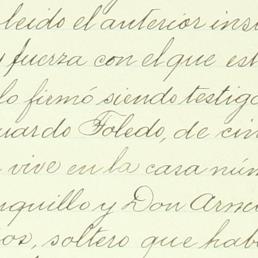 leido el anterior ins
y fuerza con el que est
lo firmó siendo testigo
uardo Toledo, de cin
vive en la casa núm
nquillo y Don Arse
ios, soltero que hab